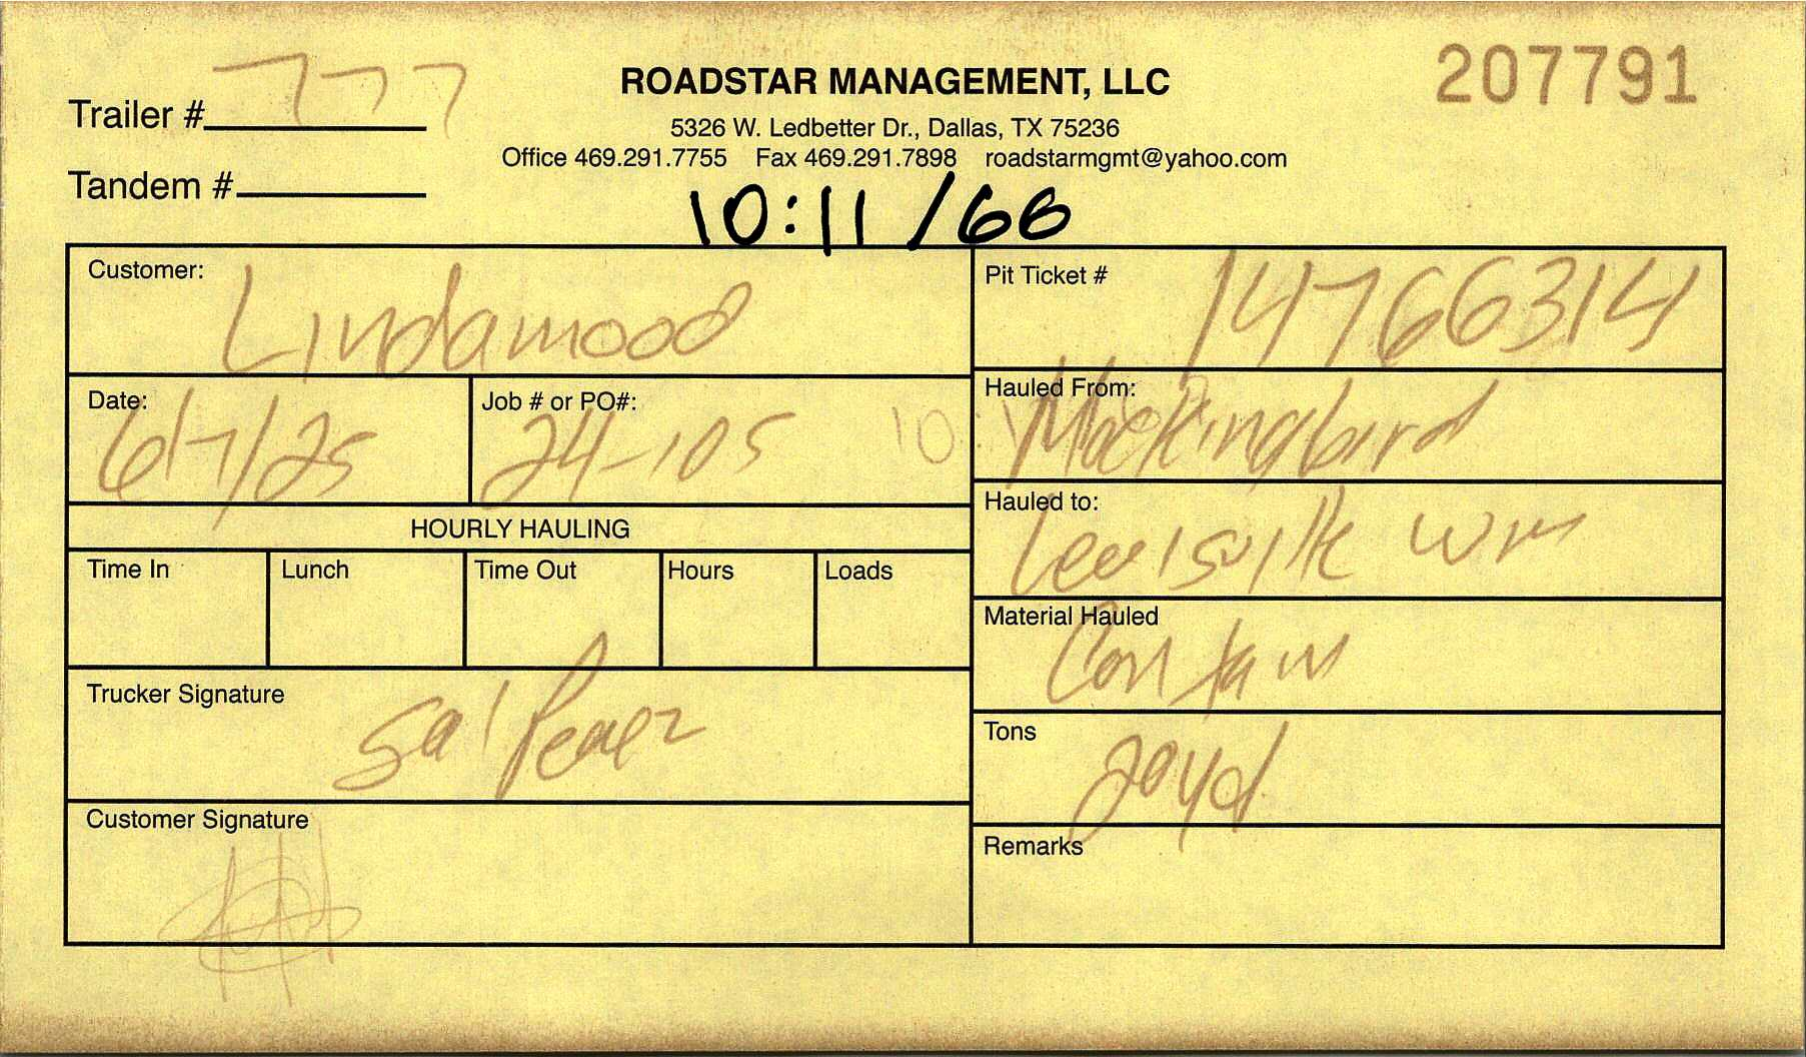 Trailer # 777
ROADSTAR MANAGEMENT, LLC
207791
5326 W. Ledbetter Dr., Dallas, TX 75236
Office 469.291.7755 Fax 469.291.7898 roadstarmgmt@yahoo.com
Tandem #
10:11 /66
Customer: Lindamood
Pit Ticket # 14766314
Date: 6/7/25
Job # or PO#: 24-105
Hauled From: Mockingbird
Hauled to: Lewisville WM
HOURLY HAULING
Time In Lunch Time Out Hours Loads
Material Hauled Con
Trucker Signature Sal Perez
Tons 20yd
Customer Signature
Remarks